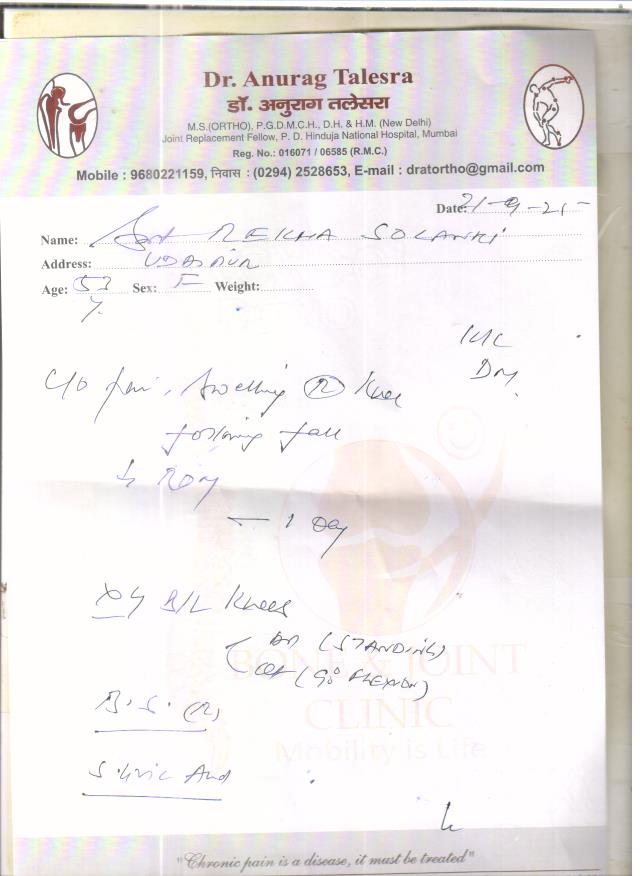 Dr. Anurag Talesra
डॉ. अनुराग तलेसरा
M.S.(ORTHO), P.G.D.M.C.H., D.H. & H.M. (New Delhi)
Joint Replacement Fellow, P. D. Hinduja National Hospital, Mumbai
Reg. No.: 016071 / 06585 (R.M.C.)
Mobile : 9680221159, निवास : (0294) 2528653, E-mail : dratortho@gmail.com
Date: 21-9-25
Name: Smt REKHA SOLANKI
Address: UDAIPUR
Age: 53 Y Sex: F Weight:
K/C
DM
C/O pain, Swelling (R) Knee
following fall
↓ ROM
1 Day
B/L Knees
AP (STANDING)
LAT (90° FLEXION)
B.S. (R)
BONE & JOINT
CLINIC
Mobility is Life
"Chronic pain is a disease, it must be treated"